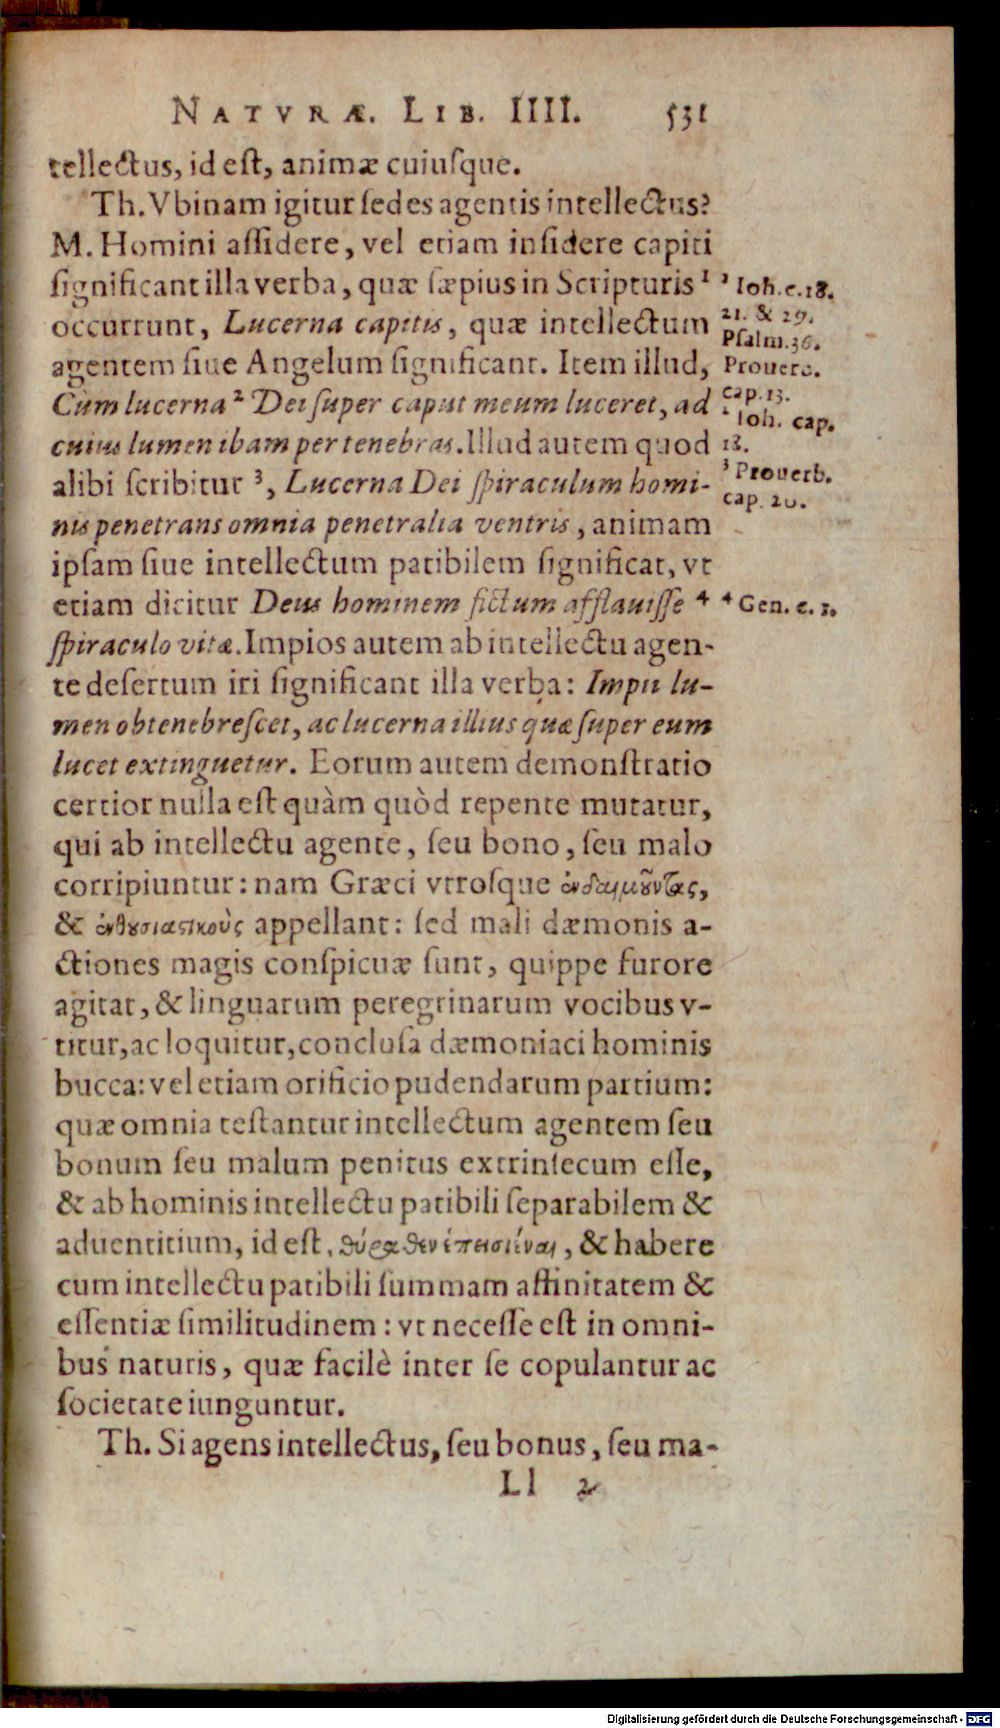 NATVRÆ. LIB. IIII. 531
tellectus, id est, animæ cuiusque.
Th. Vbinam igitur sedes agentis intellectus?
M. Homini assidere, vel etiam insidere capiti
significant illa verba, quæ sæpius in Scripturis ¹
occurrunt, Lucerna capitis, quæ intellectum
agentem siue Angelum significant. Item illud,
Cùm lucerna ² Dei super caput meum luceret, ad
cuius lumen ibam per tenebras. Illud autem quod
alibi scribitur ³, Lucerna Dei spiraculum homi-
nis penetrans omnia penetralia ventris, animam
ipsam siue intellectum patibilem significat, vt
etiam dicitur Deus hominem fictum afflauisse ⁴
spiraculo vitæ. Impios autem ab intellectu agen-
te desertum iri significant illa verba: Impii lu-
men obtenebrescet, ac lucerna illius quæ super eum
lucet extinguetur. Eorum autem demonstratio
certior nulla est quàm quòd repente mutatur,
qui ab intellectu agente, seu bono, seu malo
corripiuntur: nam Græci vtrosque ἐνδαιμοῦντας,
& ἐνθουσιαστικοὺς appellant: sed mali dæmonis a-
ctiones magis conspicuæ sunt, quippe furore
agitat, & linguarum peregrinarum vocibus v-
titur, ac loquitur, conclusa dæmoniaci hominis
bucca: vel etiam orificio pudendarum partium:
quæ omnia testantur intellectum agentem seu
bonum seu malum penitus extrinsecum esse,
& ab hominis intellectu patibili separabilem &
aduentitium, id est, θύραθεν ἐπεισιέναι, & habere
cum intellectu patibili summam affinitatem &
essentiæ similitudinem: vt necesse est in omni-
bus naturis, quæ facilè inter se copulantur ac
societate iunguntur.
Th. Si agens intellectus, seu bonus, seu ma-
Ll 2
¹ Ioh. c. 18.
21. & 29.
Psalm. 36.
Prouerb.
cap. 13.
² Ioh. cap.
18.
³ Prouerb.
cap. 20.
⁴ Gen. c. 1.
Digitalisierung gefördert durch die Deutsche Forschungsgemeinschaft - DFG